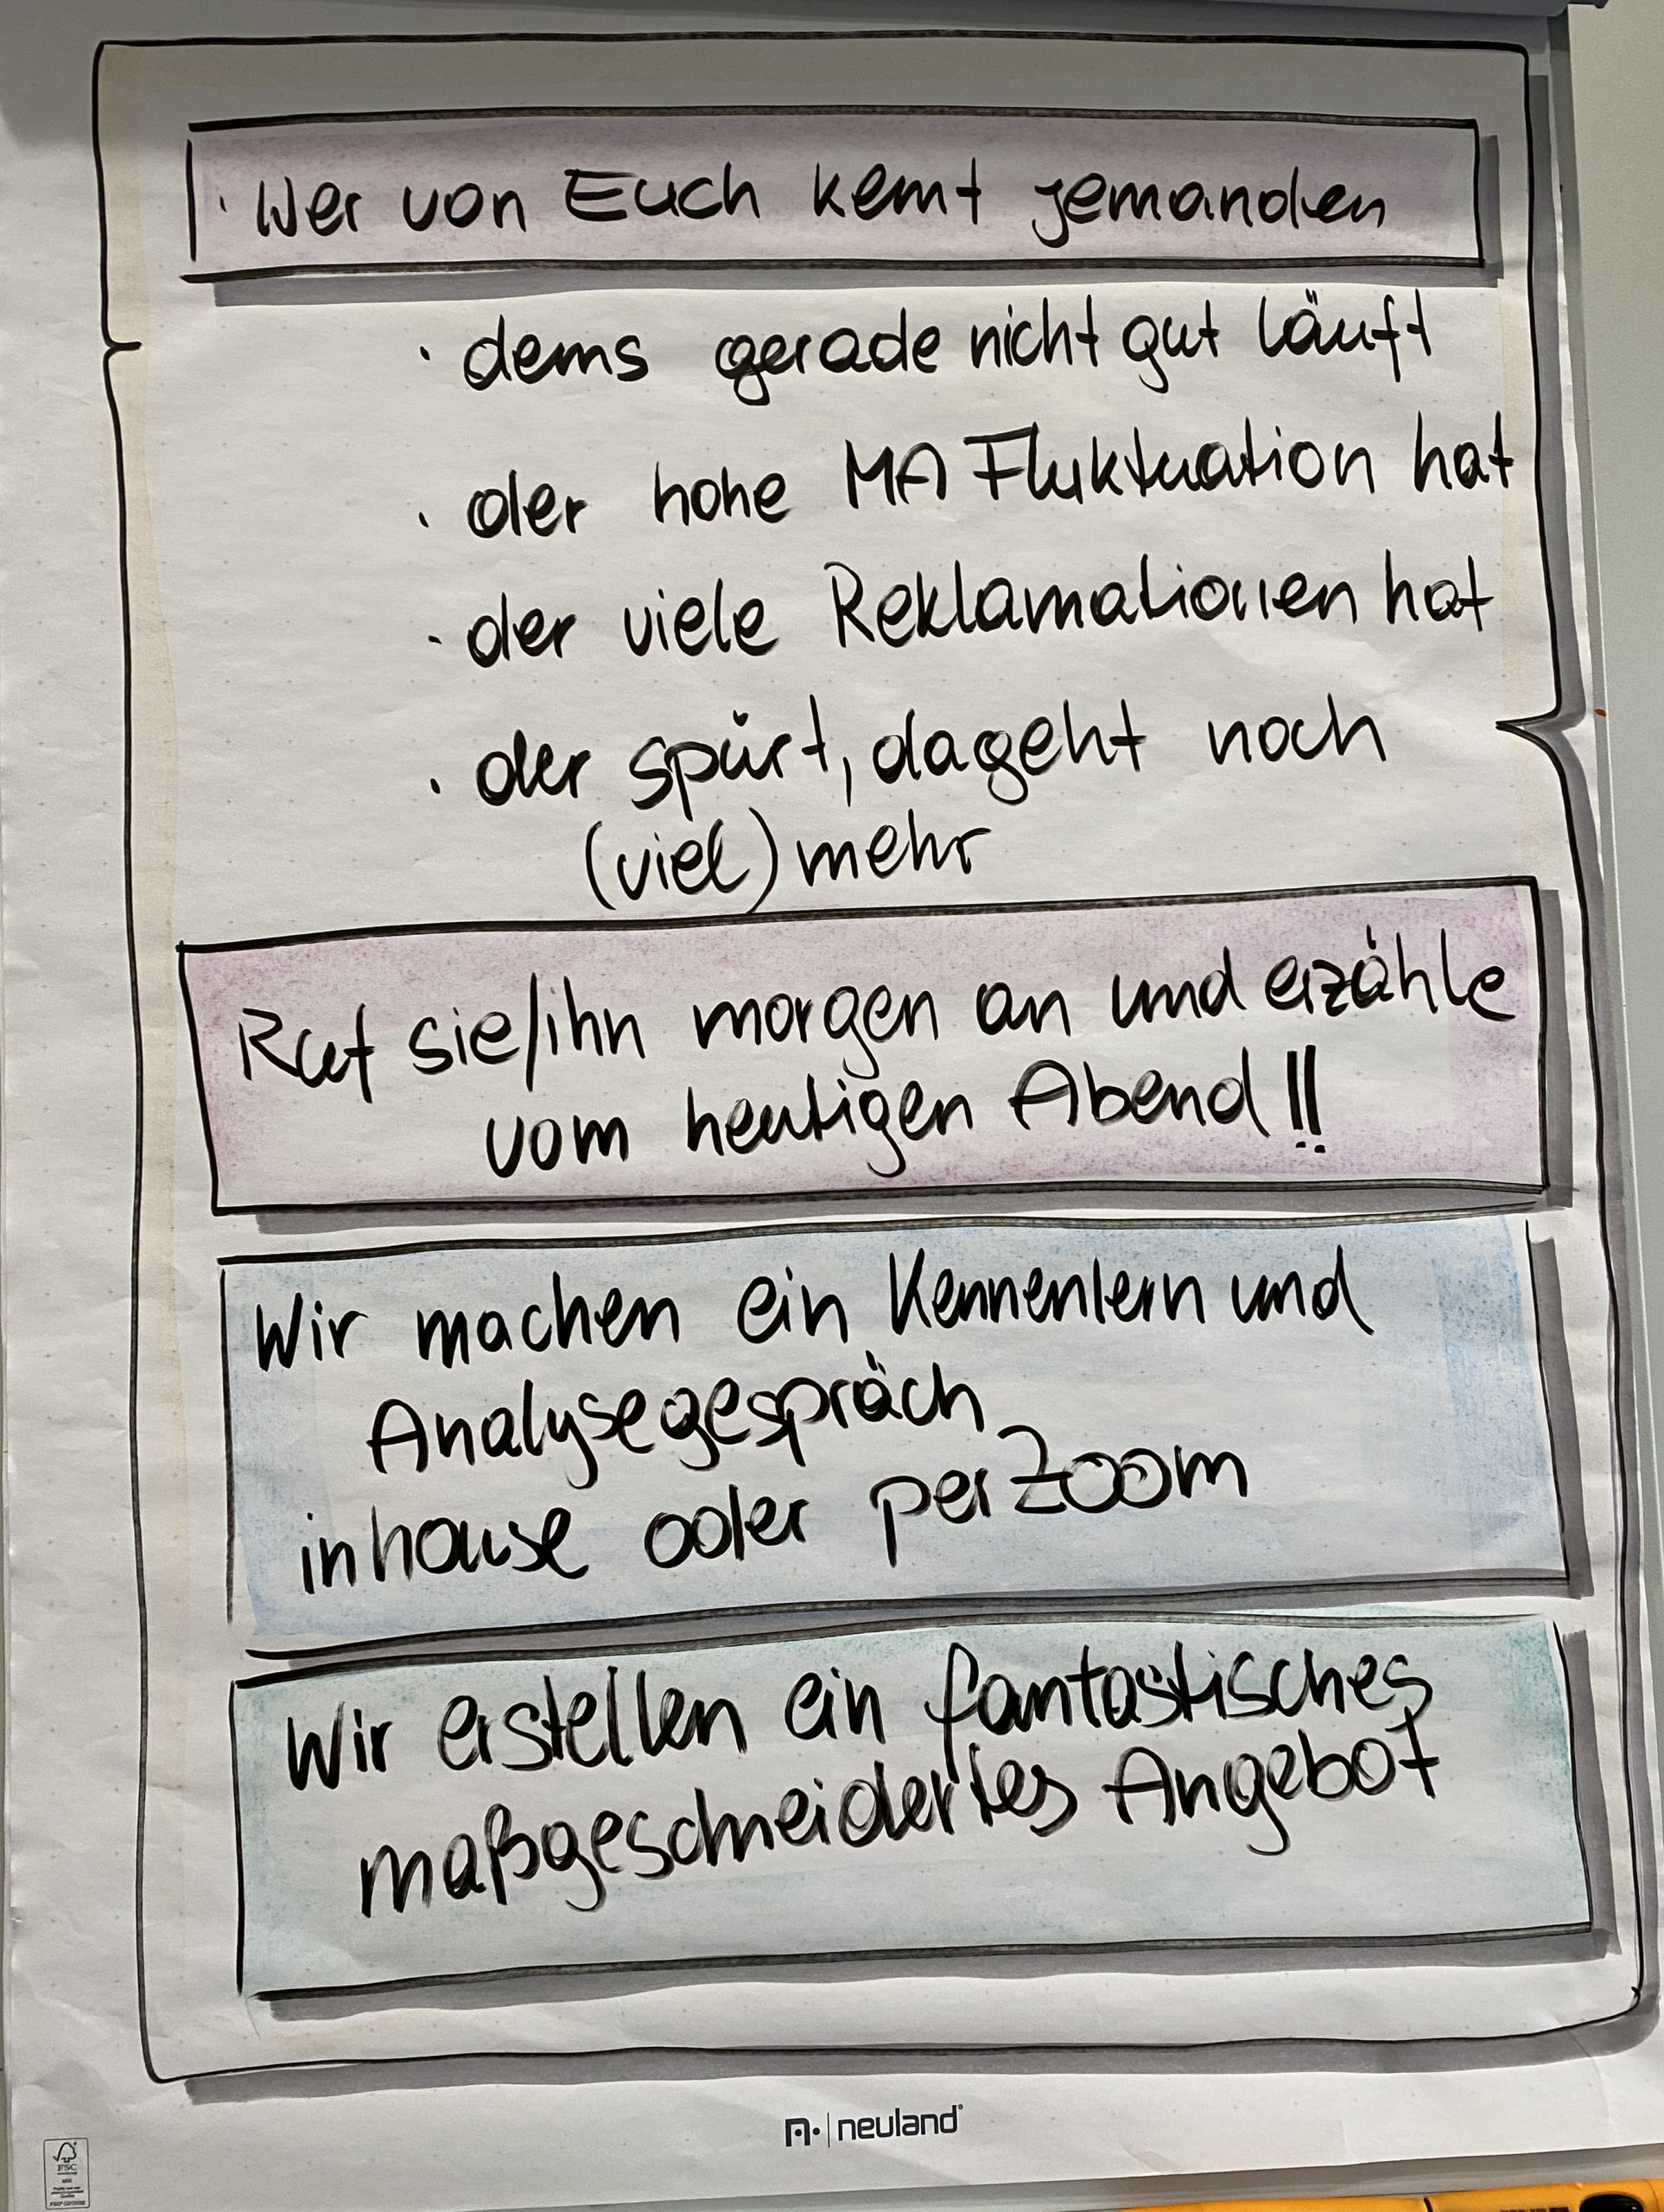 · Wer von Euch kennt jemanden
· dems gerade nicht gut läuft
· der hohe MA Fluktuation hat
- der viele Reklamationen hat
· der spürt, da geht noch
(viel) mehr
Ruf sie/ihn morgen an und erzähle
vom heutigen Abend!!
Wir machen ein Kennenlern und
Analysegespräch
inhouse oder per Zoom
Wir erstellen ein fantastisches
maßgeschneidertes Angebot
neuland
FSC
MIX